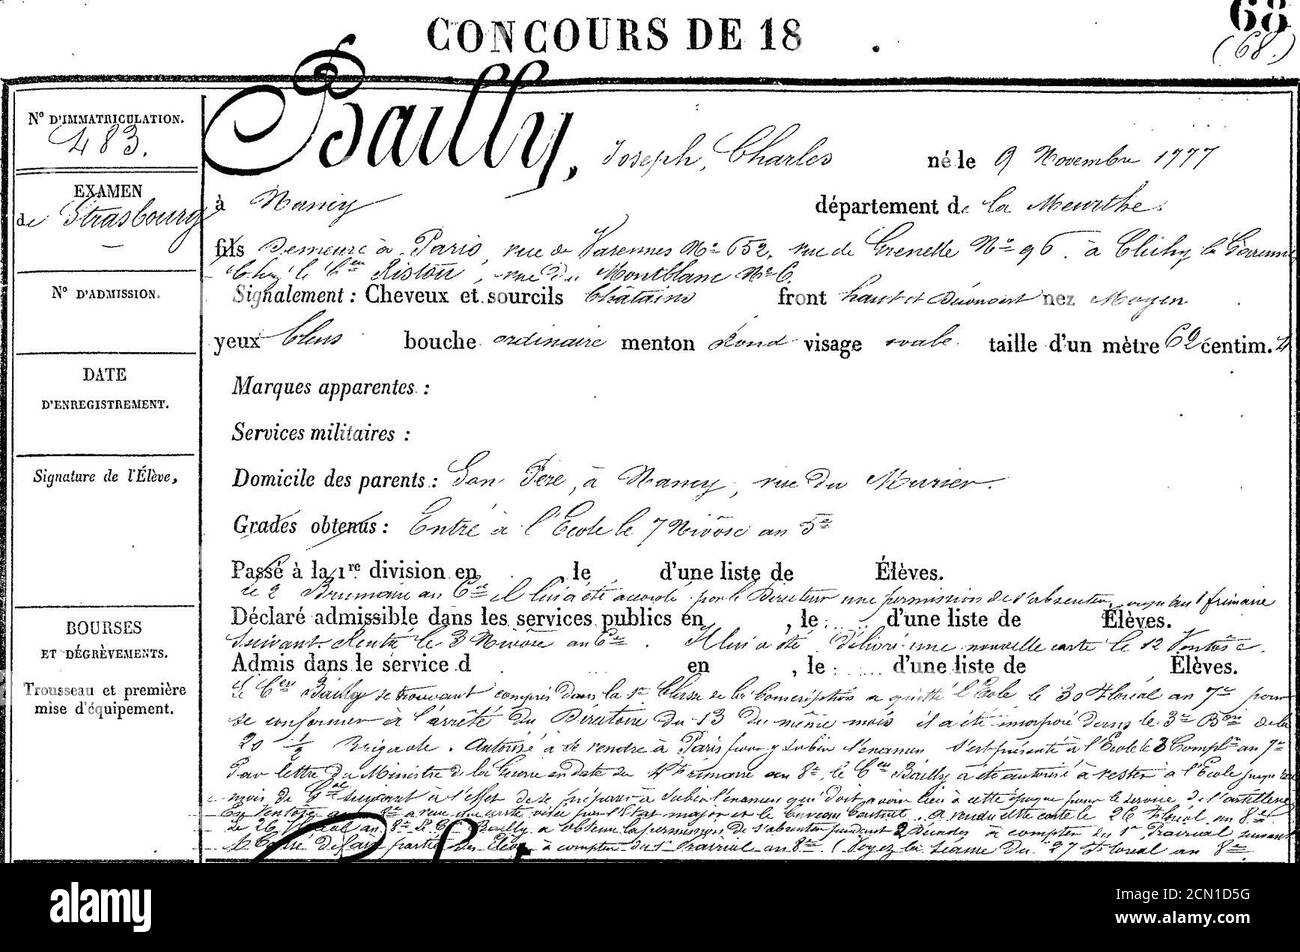 CONCOURS DE 18
68
(68.)
N° D'IMMATRICULATION.
483.
EXAMEN
de Strasbourg
N° D'ADMISSION.
DATE
D'ENREGISTREMENT.
Signature de l'Élève,
BOURSES
ET DÉGRÈVEMENTS.
Trousseau et première
mise d'équipement.
Bailly, Joseph, Charles né le 9 Novembre 1777
à Nancy département de la Meurthe
fils Demeure à Paris, rue de Varennes N° 652, rue de Grenelle N° 96. à Clichy la Garenne
Chez le Cen Riston, rue du Montblanc N° 6.
Signalement : Cheveux et sourcils Châtains front haut et découvert nez Moyen
yeux bleus bouche ordinaire menton Rond visage ovale taille d'un mètre 62 centim. 4
Marques apparentes :
Services militaires :
Domicile des parents : Son Père, à Nancy, rue du Murier.
Grades obtenus : Entré à l'Ecole le 7 Nivôse an 5e
Passé à la 1re division en le d'une liste de Élèves.
le 2 Brumaire an 6e il lui a été accordé par le Directeur une permission de s'absenter jusqu'au 1 frimaire
Déclaré admissible dans les services publics en , le d'une liste de Élèves.
suivant. Rentré le 3 Nivôse an 6e. Il lui a été délivré une nouvelle carte le 12 Ventôse.
Admis dans le service d en , le d'une liste de Élèves.
le Cen Bailly se trouvant compris dans la 1re Classe de la Conscription a quitté l'Ecole le 30 Floréal an 7e pour
se conformer à l'arrêté du Directoire du 13 du même mois il a été incorporé dans le 3e Bon de la
20 1/2 Brigade. Autorisé à se rendre à Paris pour y subir l'examen s'est présenté à l'Ecole le 3 Complre an 7e
Par lettre du Ministre de la Guerre en date du frimaire an 8e le Cen Bailly a été autorisé à rester à l'Ecole
mois de suivant à l'effet de se préparer à subir l'examen qui doit avoir lieu à cette époque pour le service de l'artillerie
an 8e a reçu une carte visée par l'Etat major et le bureau central. A rendu cette carte le 26 Floréal an 8e
Le 26 Floréal an 8e le C. Bailly a obtenu la permission de s'absenter pendant 2 Décades à compter du 1er Prairial suivant
à compter du 1er Prairial an 8e (Voyez la séance du 27 Floréal an 8e
alamy
Image ID: 2CN1D5G
www.alamy.com